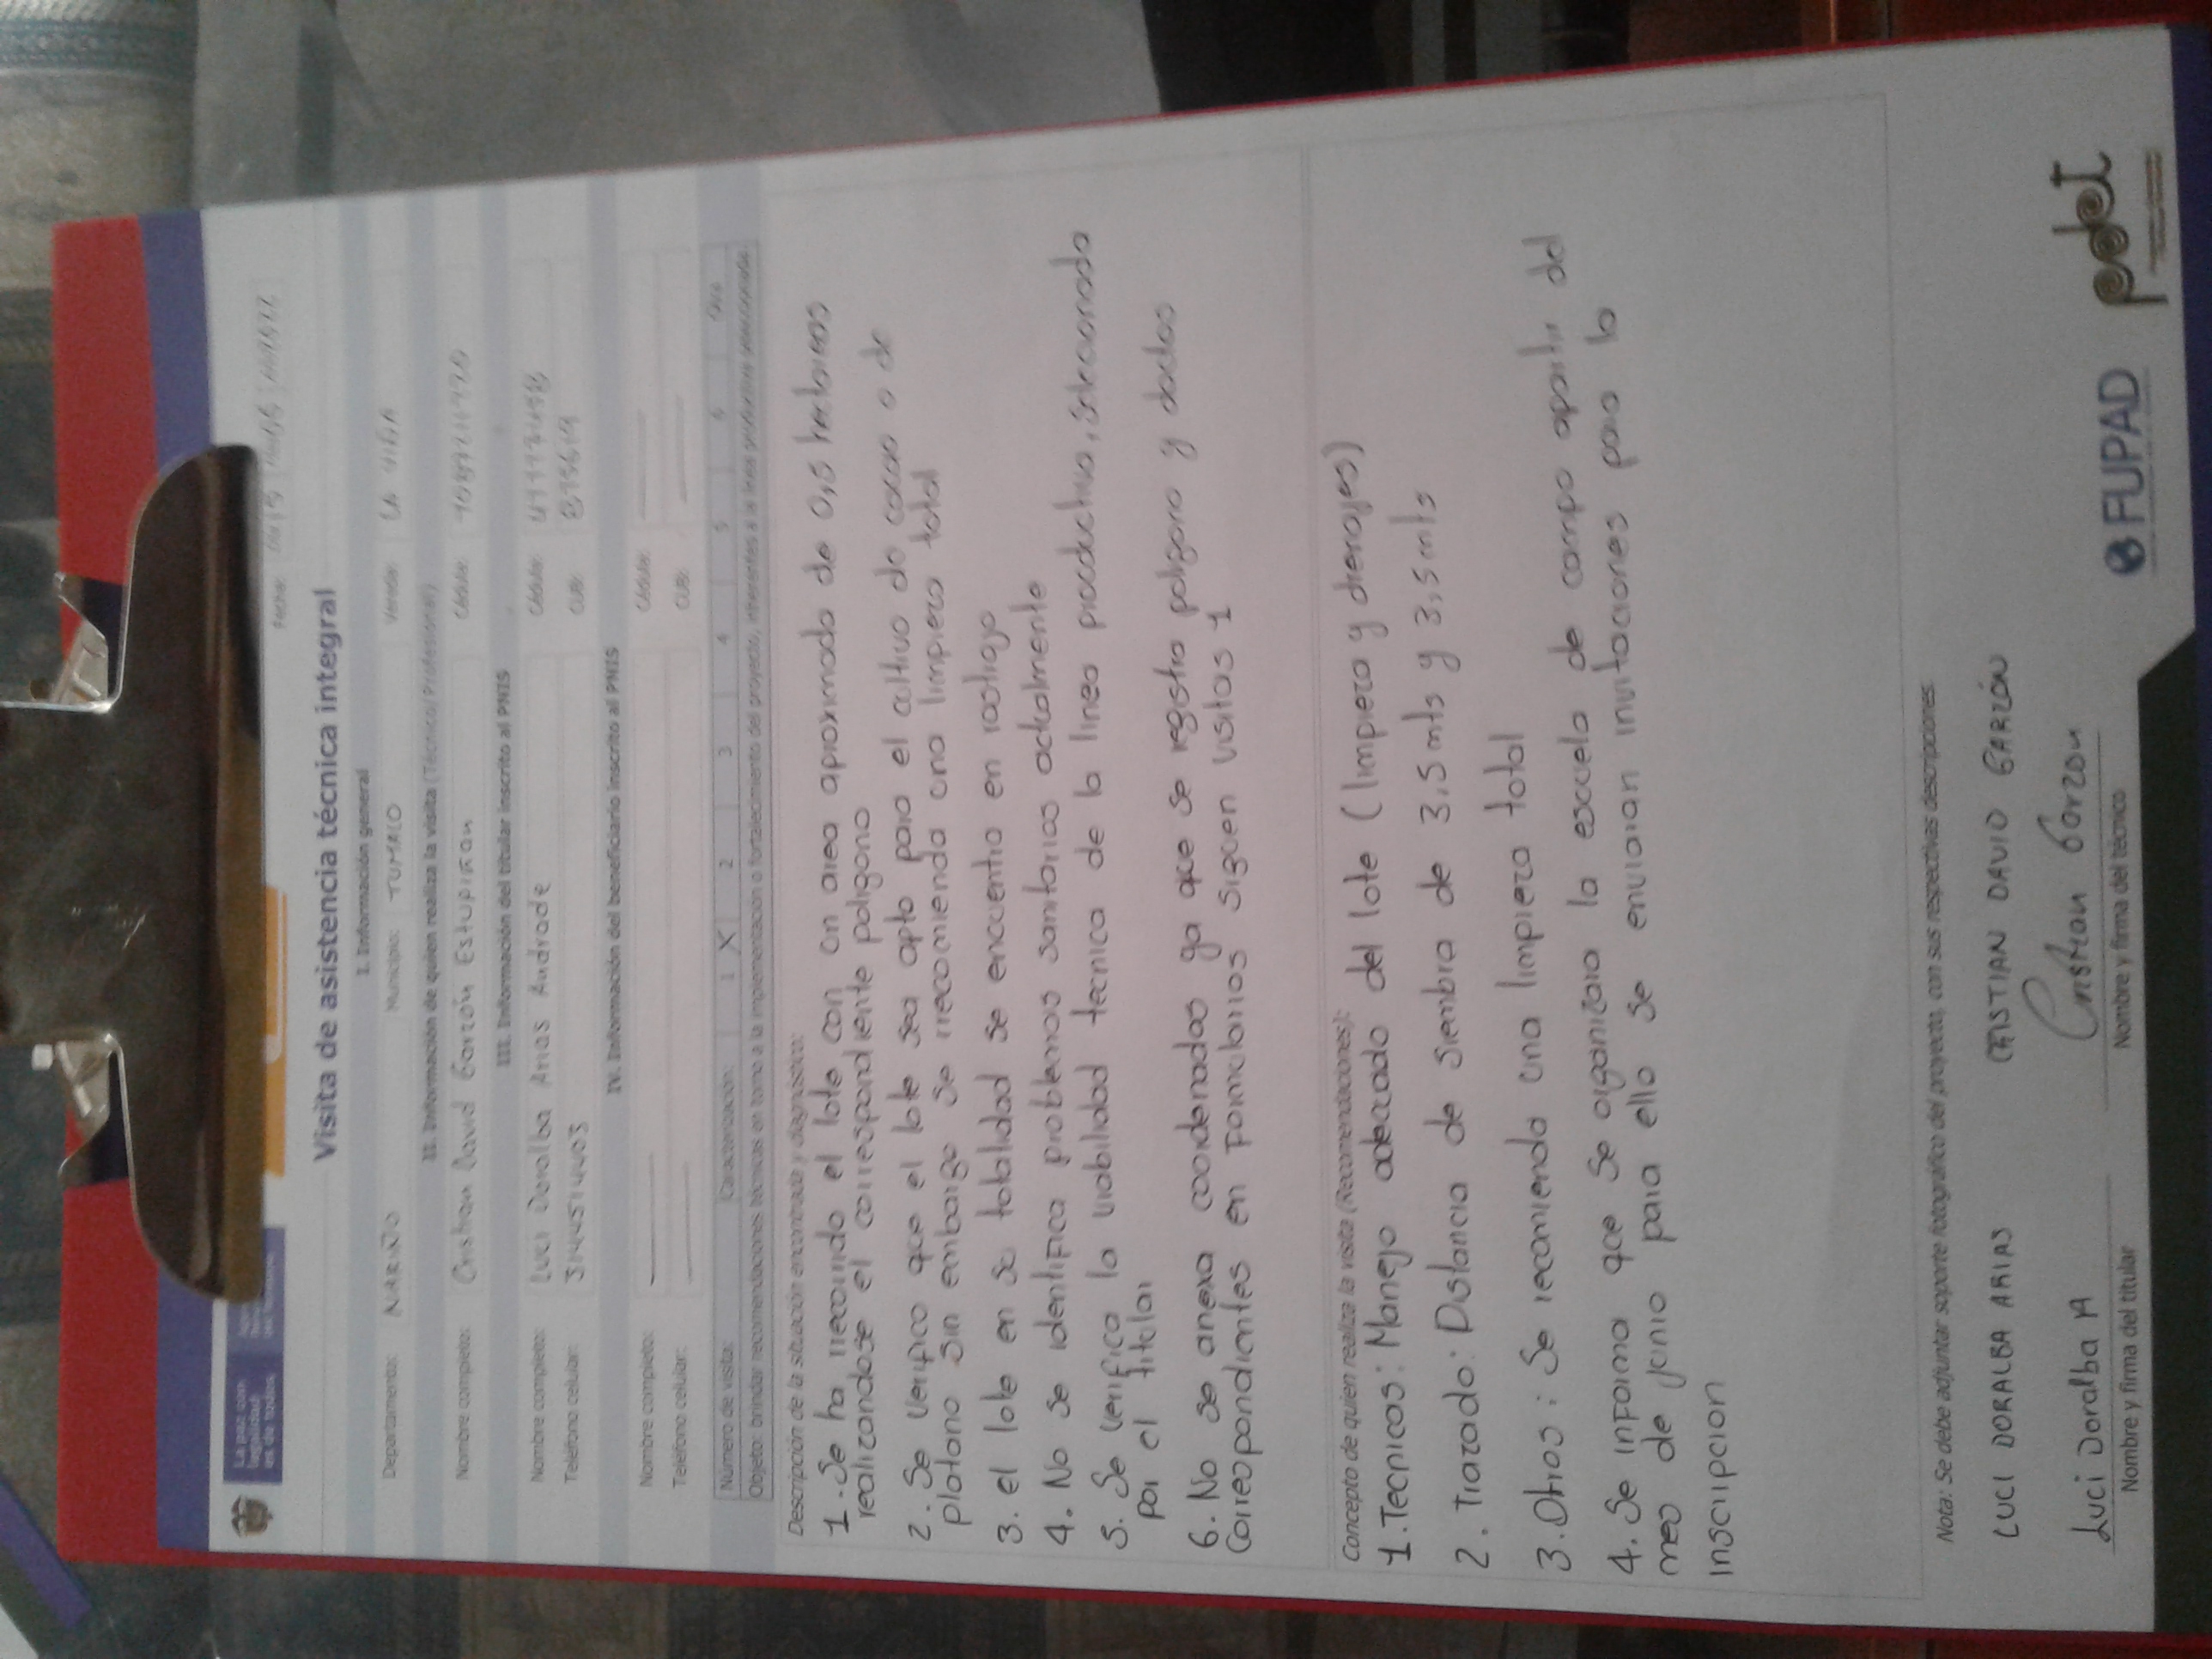 La paz con
legalidad
es de todos
Fecha:
Visita de asistencia técnica integral
I. Información general
Departamento: NARIÑO Municipio: TUMACO Vereda: LA VIÑA
II. Información de quien realiza la visita (Técnico/Profesional)
Nombre completo: Cristian David Garzón Estupiñan Cédula:
III. Información del titular inscrito al PNIS
Nombre completo: Luci Doralba Arias Andrade Cédula:
Teléfono celular: 3144514403 CUB:
IV. Información del beneficiario inscrito al PNIS
Nombre completo: Cédula:
Teléfono celular: CUB:
Número de visita: Caracterización: 1 X 2 3 4 5 6 Otra
Objeto: brindar recomendaciones técnicas en torno a la implementación o fortalecimiento del proyecto, inherentes a la línea productiva seleccionada.
Descripción de la situación encontrada y diagnóstico:
1.-Se ha rrecorrido el lote con un area aproximada de 0,5 hectareas
realizandose el correspondiente poligono
2.-Se verifico que el lote sea apto para el cultivo de cacao o de
platano sin embargo se rrecomienda una limpieza total
3. el lote en su totalidad se encuentra en rastrojo
4. No se identifica problemas sanitarios actualmente
5. Se verifica la viabilidad tecnica de la linea productiva, seleccionada
por el titular
6. No se anexa coordenadas ya que se registro poligono y dados
Correspondientes en Formularios siguen visitas 1
Concepto de quien realiza la visita (Recomendaciones):
1.Tecnicos: Manejo adecuado del lote (limpieza y drenajes)
2. Trazado: Distancia de siembra de 3,5 mts y 3,5 mts
3. Otros: Se recomienda una limpieza total
4. Se informa que se organizara la escuela de campo apartir del
mes de junio para ello se enviaran invitaciones para la
inscripcion
Nota: Se debe adjuntar soporte fotográfico del proyecto, con sus respectivas descripciones.
LUCI DORALBA ARIAS CRISTIAN DAVID GARZÓN
Luci Doralba A Cristian Garzon
Nombre y firma del titular Nombre y firma del técnico
FUPAD pdet